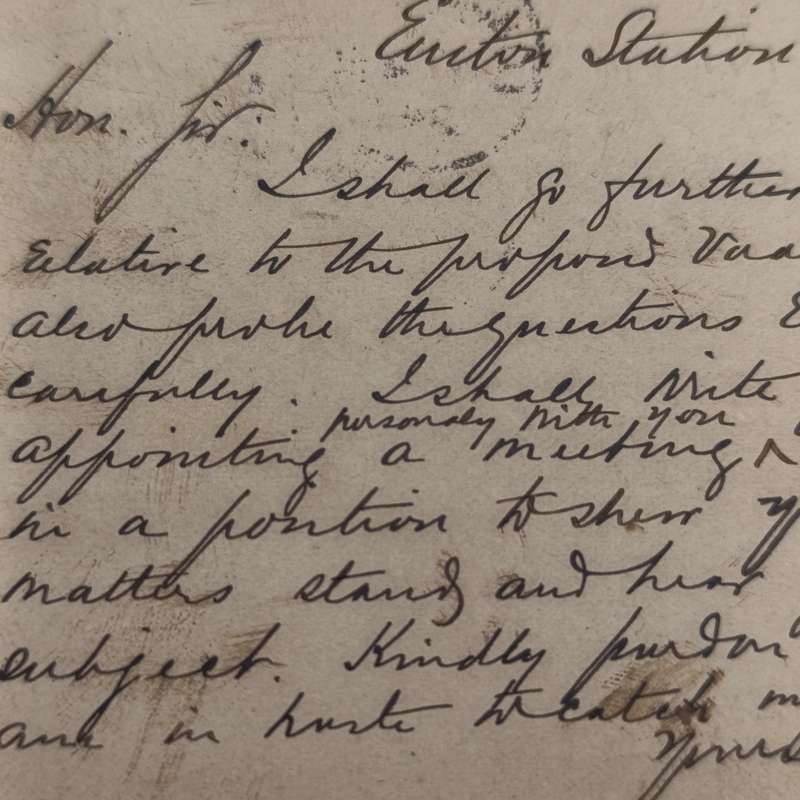 Euston Station
Hon. Sir.
I shall go further
relative to the proposed
also probe the questions
carefully. I shall write
personaly with you
appointing a meeting ^
in a position to shew
matters stand and hear
subject. Kindly pardon
am in haste to catch
Yours